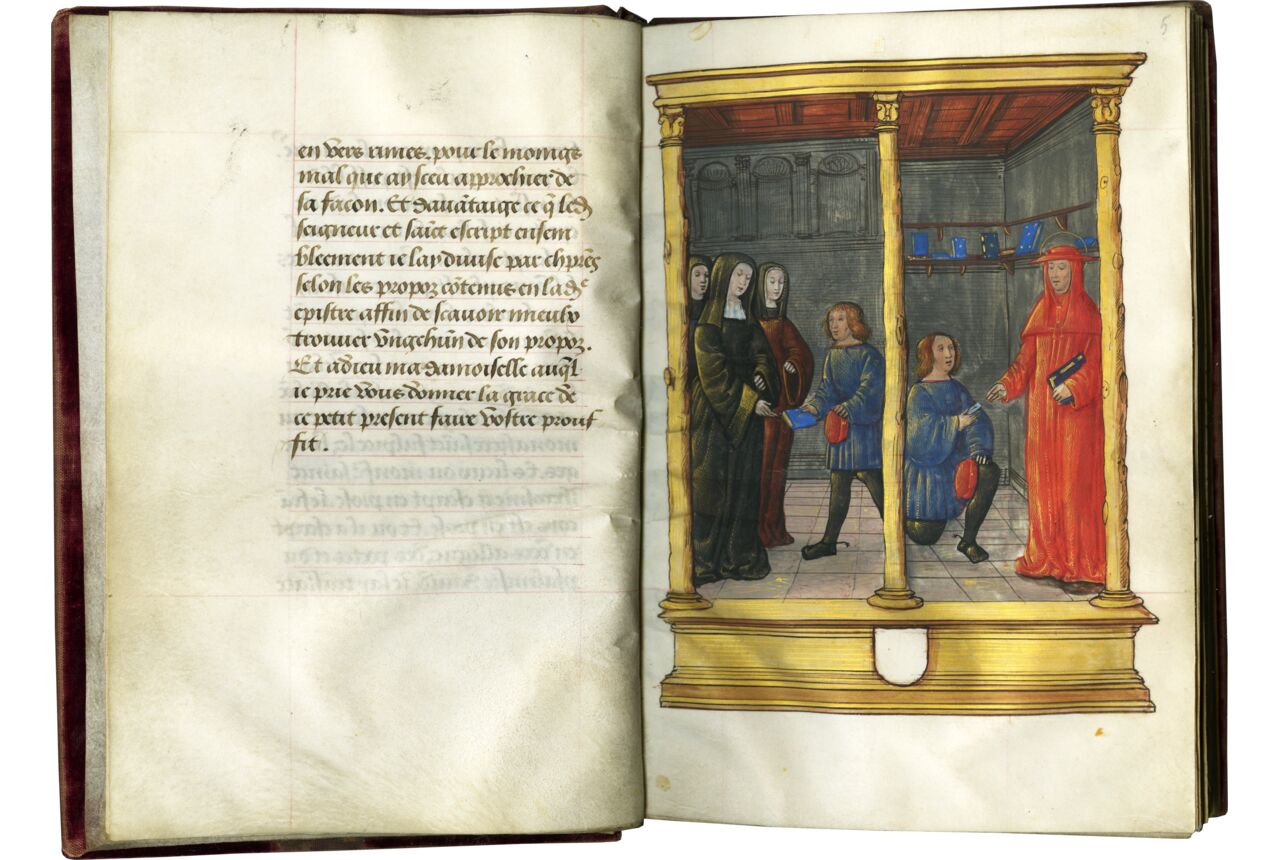 en vers rimes. pour le moings
mal que ay sceu approchier de
sa facon. Et davātaige ce q̄ led
seigneur et sāct escript ensem
bleement ie lay divise par chp̄rēs
selon les propoz cōtenus en lade
epistre affin de scavoir mieulx
trouver ungchūn de son propoz.
Et adieu ma damoiselle auql̄
ie prie vous donner la grace de
ce petit present faire vostre prouf
fit.
5